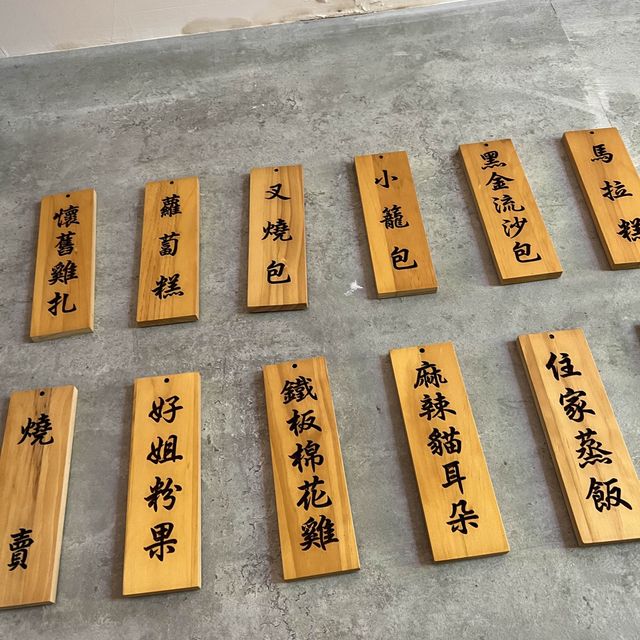 懷舊雞扎
蘿蔔糕
叉燒包
小籠包
黑金流沙包
馬拉糕
燒賣
好姐粉果
鐵板棉花雞
麻辣貓耳朵
住家蒸飯